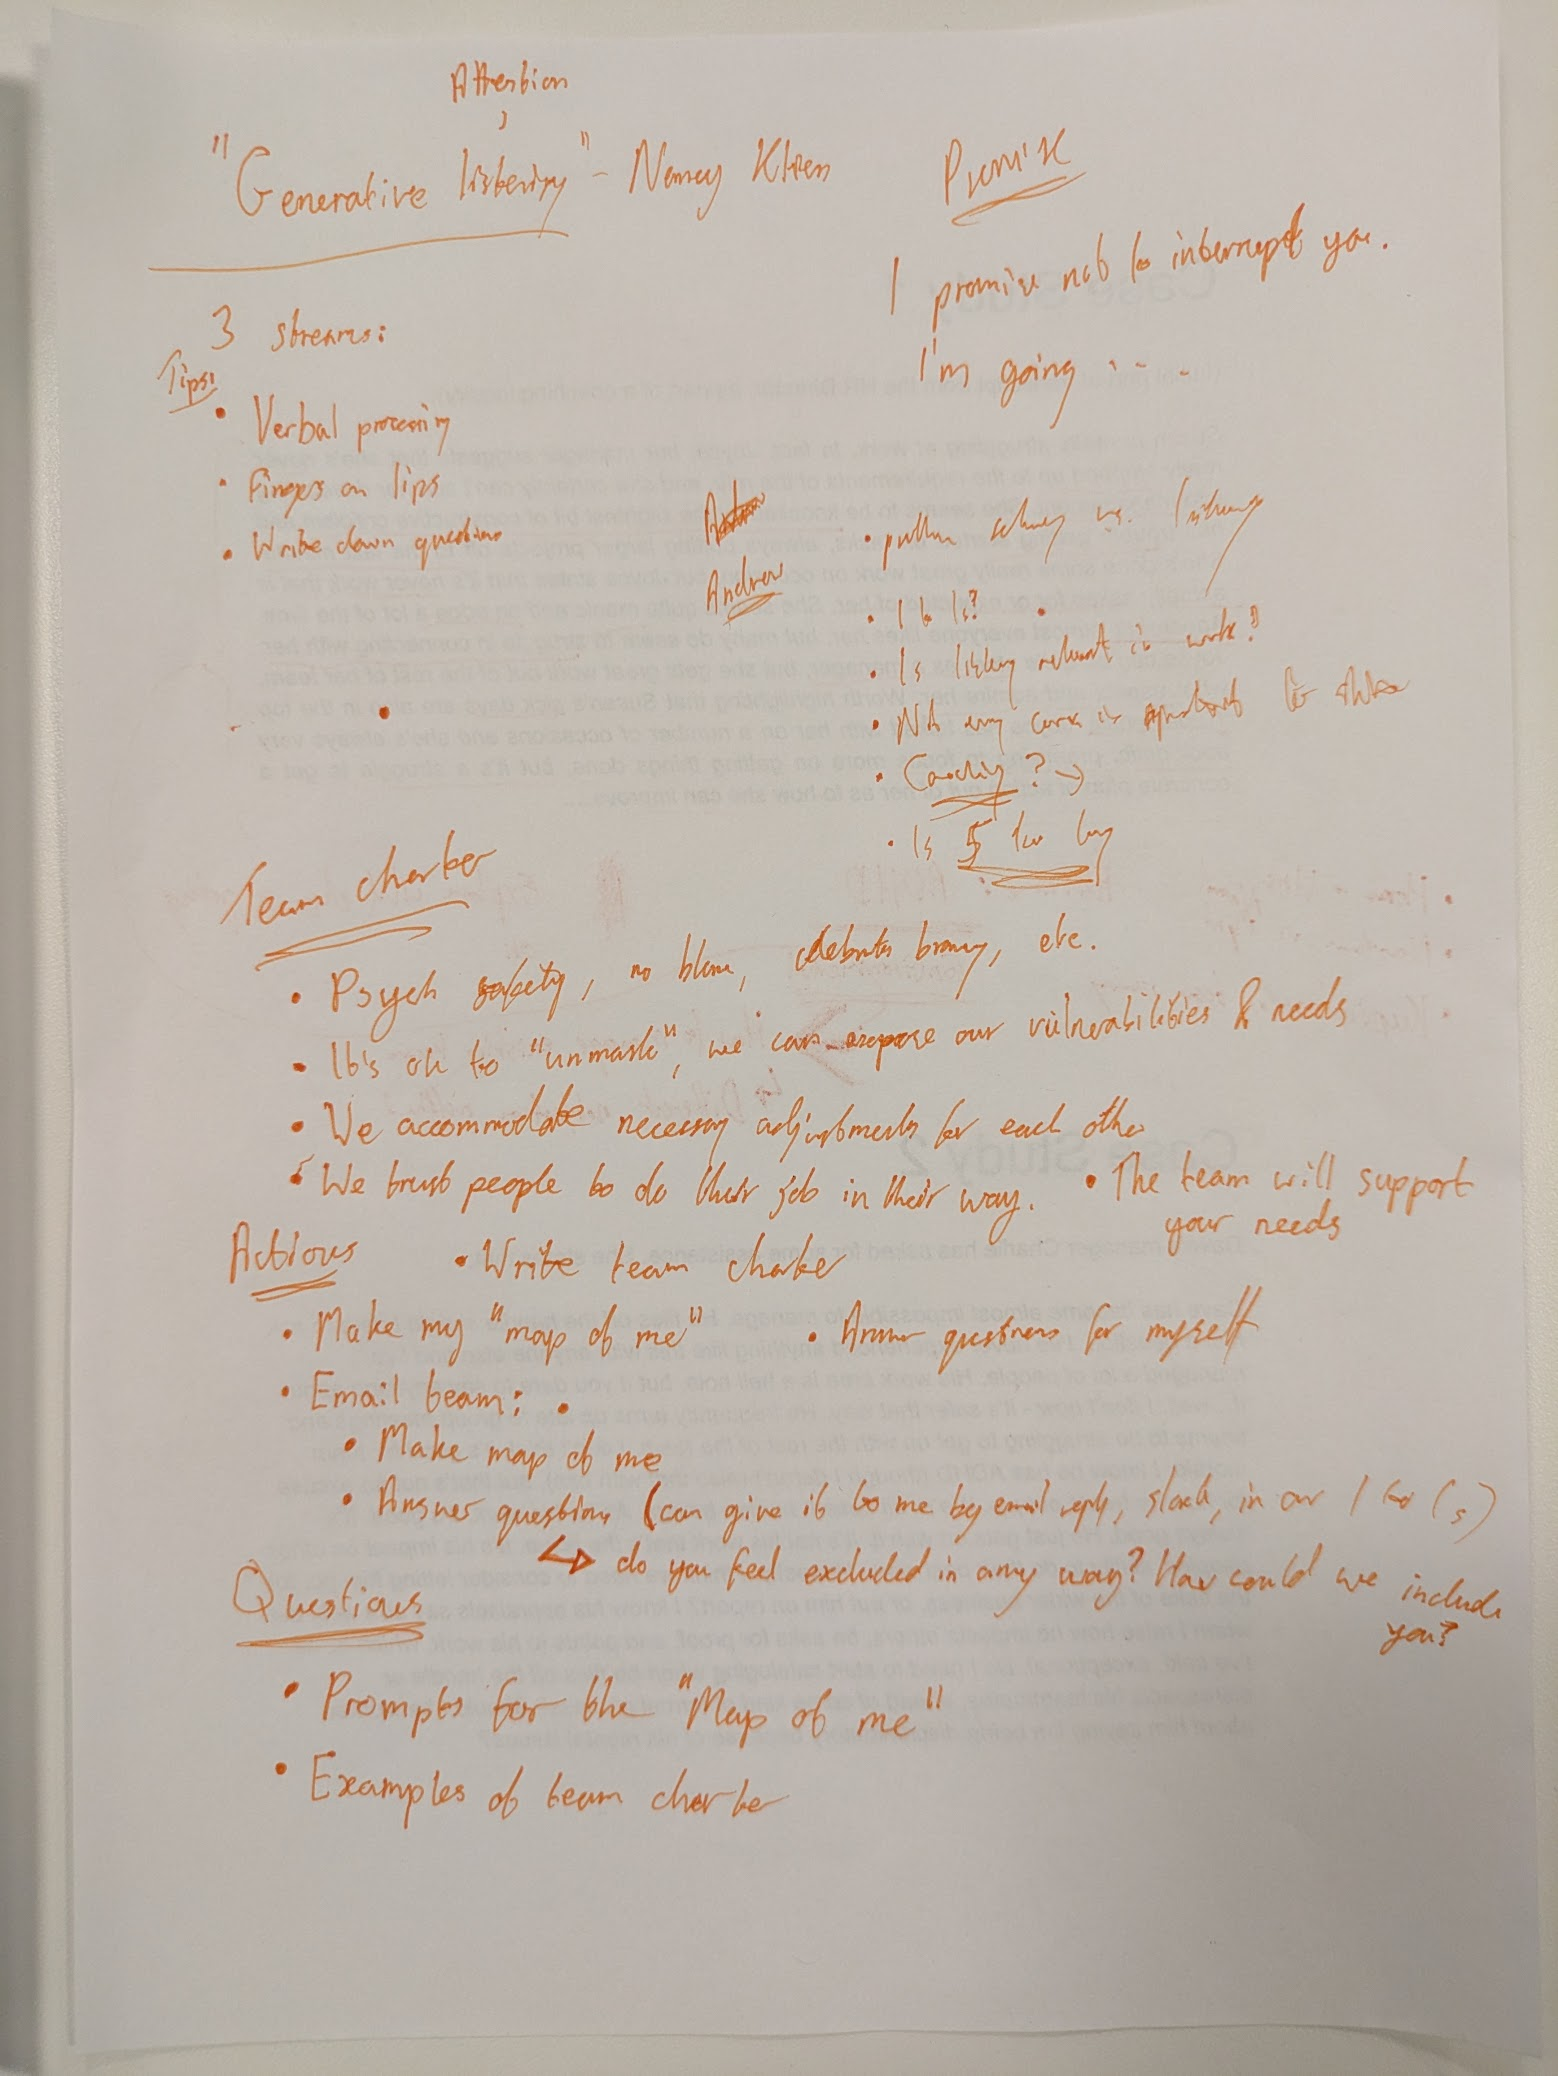 Attention
"Generative listening" - Nancy Klien
Promise
I promise not to interrupt you.
I'm going ....
3 streams:
Tips:
• Verbal processing
• Fingers on lips
• Write down questions
Andrew
• problem solving vs. listening
• 1 to 1s?
• Is listening relevant in work?
• Not every convo is
• Coaching? →
• Is 5 too long
Team charter
• Psych safety, no blame, celebrate bravery, etc.
• It's ok to "unmask", we can expose our vulnerabilities & needs
• We accommodate necessary adjustments for each other
• We trust people to do their job in their way.
• The team will support
your needs
Actions
• Write team charter
• Make my "map of me"
• Answer questions for myself
• Email team:
• Make map of me
• Answer questions (can give it to me by email reply, slack, in our 1 to 1s)
↳ do you feel excluded in any way? How could we include
you?
Questions
• Prompts for the "Map of me"
• Examples of team charter